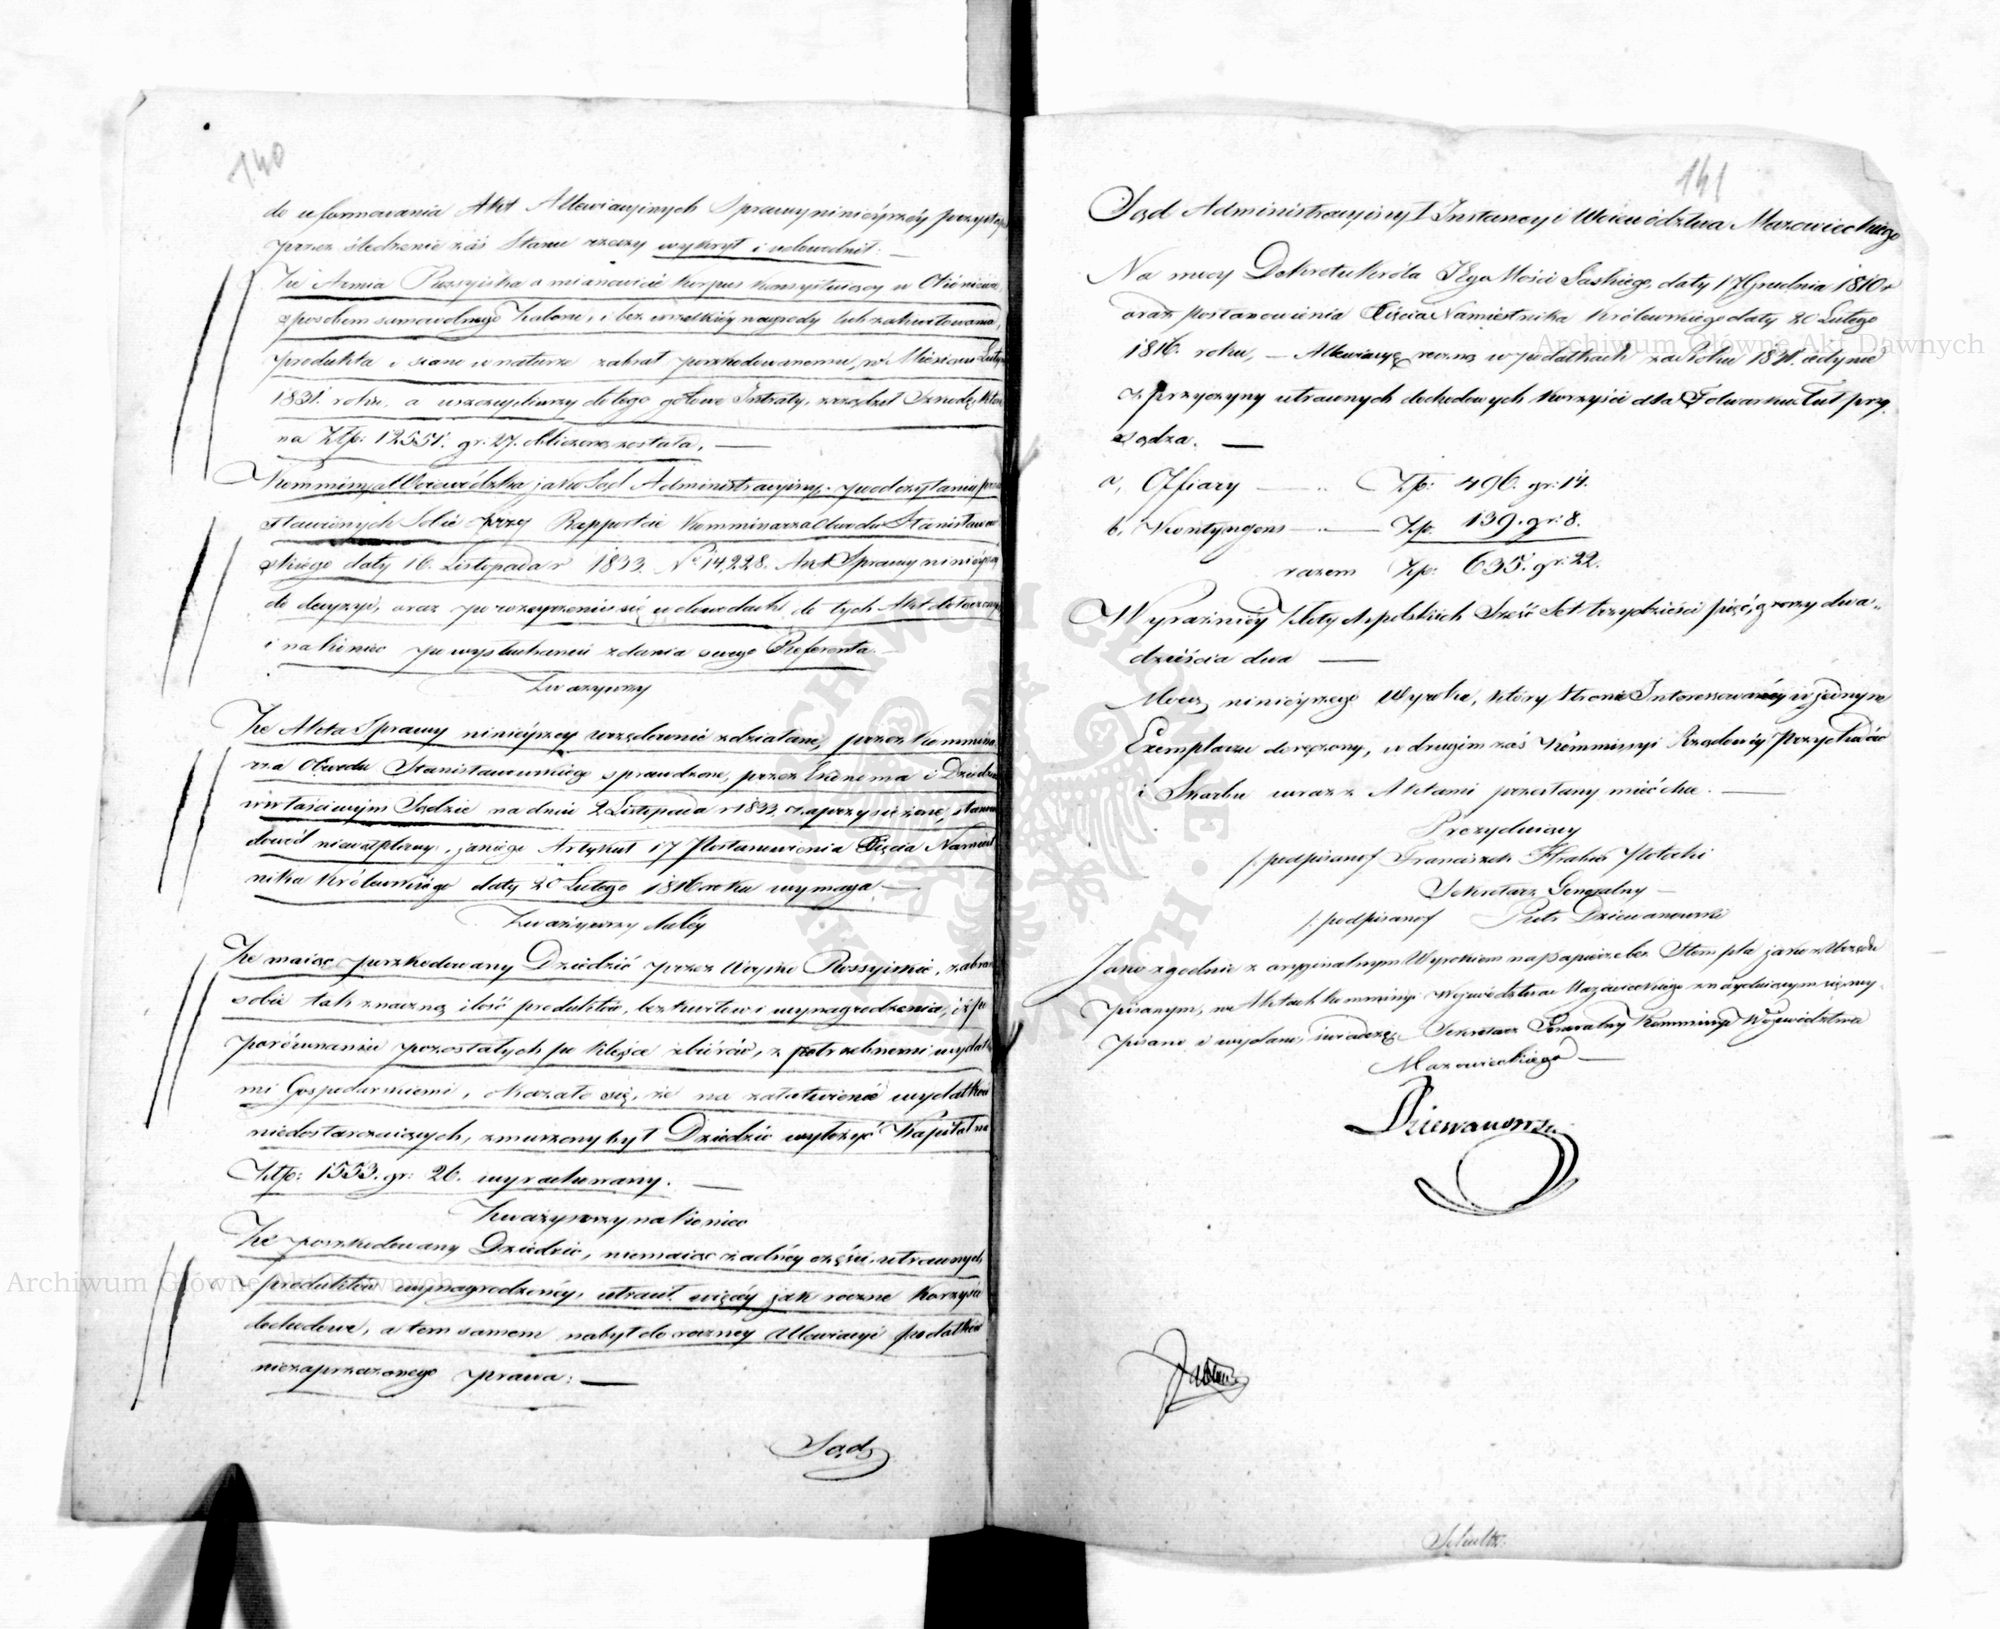 140
do uformowania Akt Allewiacyinych Sprawy ninieyszéy przystąp
przez śledzenie zaś Stanu rzeczy wykrył i udowodnił. —
Że Armia Rossyiska a mianowicie Korpus konsystuiący w
sposobem samowolnego zaboru, i bez wszelkiéy nagrody lub zakwitowania,
produkta i siano w naturze zabrał poszkodowanemu, w Miesiącu Lutym
1831. roku, a uszczupliwszy do tego gotowe Intraty, zrządził Szkodę, która
na Złp: 12551. gr: 27. obliczoną została. —
Kommissya Woiewódzka jako Sąd Administracyiny, po odczytaniu
stawionych Sobie przy Rapporcie Kommissarza Obwodu Stanisławow
skiego daty 16. Listopada r 1833. No 14228. Akt Sprawy ninieyszéy
do decyzyi, oraz po rozpoznaniu się w dowodach do tych Akt dołączonych
i nakoniec po wysłuchaniu zdania swego Referenta. —
Zważywszy
Że Akta Sprawy ninieyszey urzędownie zdziałane, przez Kommissa
rza Obwodu Stanisławowskiego sprawdzone, przez Ekonoma i Dziedzica
w właściwym Sądzie na dniu 2 Listopada r 1833. zaprzysiężone, stanowią
dowód niewątpliwy, jakiego Artykuł 17 Postanowienia Xięcia Namiest
nika Królewskiego daty 20 Lutego 1816 roku wymaga. —
Zważywszy daléy
Że maiąc poszkodowany Dziedzic przez Woysko Rossyiskie, zabraną
sobie tak znaczną ilość produktów, bez kwitów i wynagrodzenia, iż po
porównaniu pozostałych po klęsce zbiorów, z potrzebnemi wydatka
mi Gospodarskiemi, okazało się, że na załatwienie wydatków
niedostarczaiących, zmuszony był Dziedzic wyłożyć Kapitał na
Złp: 1553. gr: 26. wyrachowany. —
Zważywszy nakoniec
Że poszkodowany Dziedzic, niemaiąc żadnéy części utraconych
produktów wynagrodzonéy, utracił więcéy jak roczne korzyści
dochodowe, a tem samem nabył do roczney Allewiacyi podatków
niezaprzeczonego prawa: —
Sąd
141
Sąd Administracyiny I Instancyi Woiewództwa Mazowieckiego
Na mocy Dekretu Króla JEgo Mości Saskiego, daty 17 Grudnia 1810 r
oraz postanowienia Xięcia Namiestnika Królewskiego daty 20 Lutego
1816. roku, — Allewiacyę roczną w podatkach za Roku 1831. iedynie
z przyczyny utraconych dochodowych korzyści dla Folwarku przy
sądza. —
a, Offiary — „ — Złp: 496. gr: 14.
b, Kontyngens — „ — Złp. 139. gr: 8.
razem Złp: 635. gr: 22.
Wyraźniéy Złotych polskich Sześć Set trzydzieści pięć, groszy dwa„
dzieścia dwa —
Mocą ninieyszego Wyroku, który Stronie Interessowanéy w jednym
Exemplarzu doręczony, w drugim zaś Kommissyi Rządowéy Przychodów
i Skarbu wraz z Aktami przesłany mieć chce. —
Prezyduiący
/: podpisano :/ Franciszek Hrabia Potocki
Sekretarz Generalny —
/: podpisano :/ Piotr Dziewanowski
Jako zgodnie z oryginalnym Wyrokiem na papierze bez Stempla jako z Urzędu
pisanym, w Aktach Kommissyi Woiewództwa Mazowieckiego znayduiącym się wy„
pisano i wydano, świadczę Sekretarz Generalny Kommissyi Woiewództwa
Mazowieckiego —
Dziewanowski
Archiwum Główne Akt Dawnych
Archiwum Główne Akt Dawnych